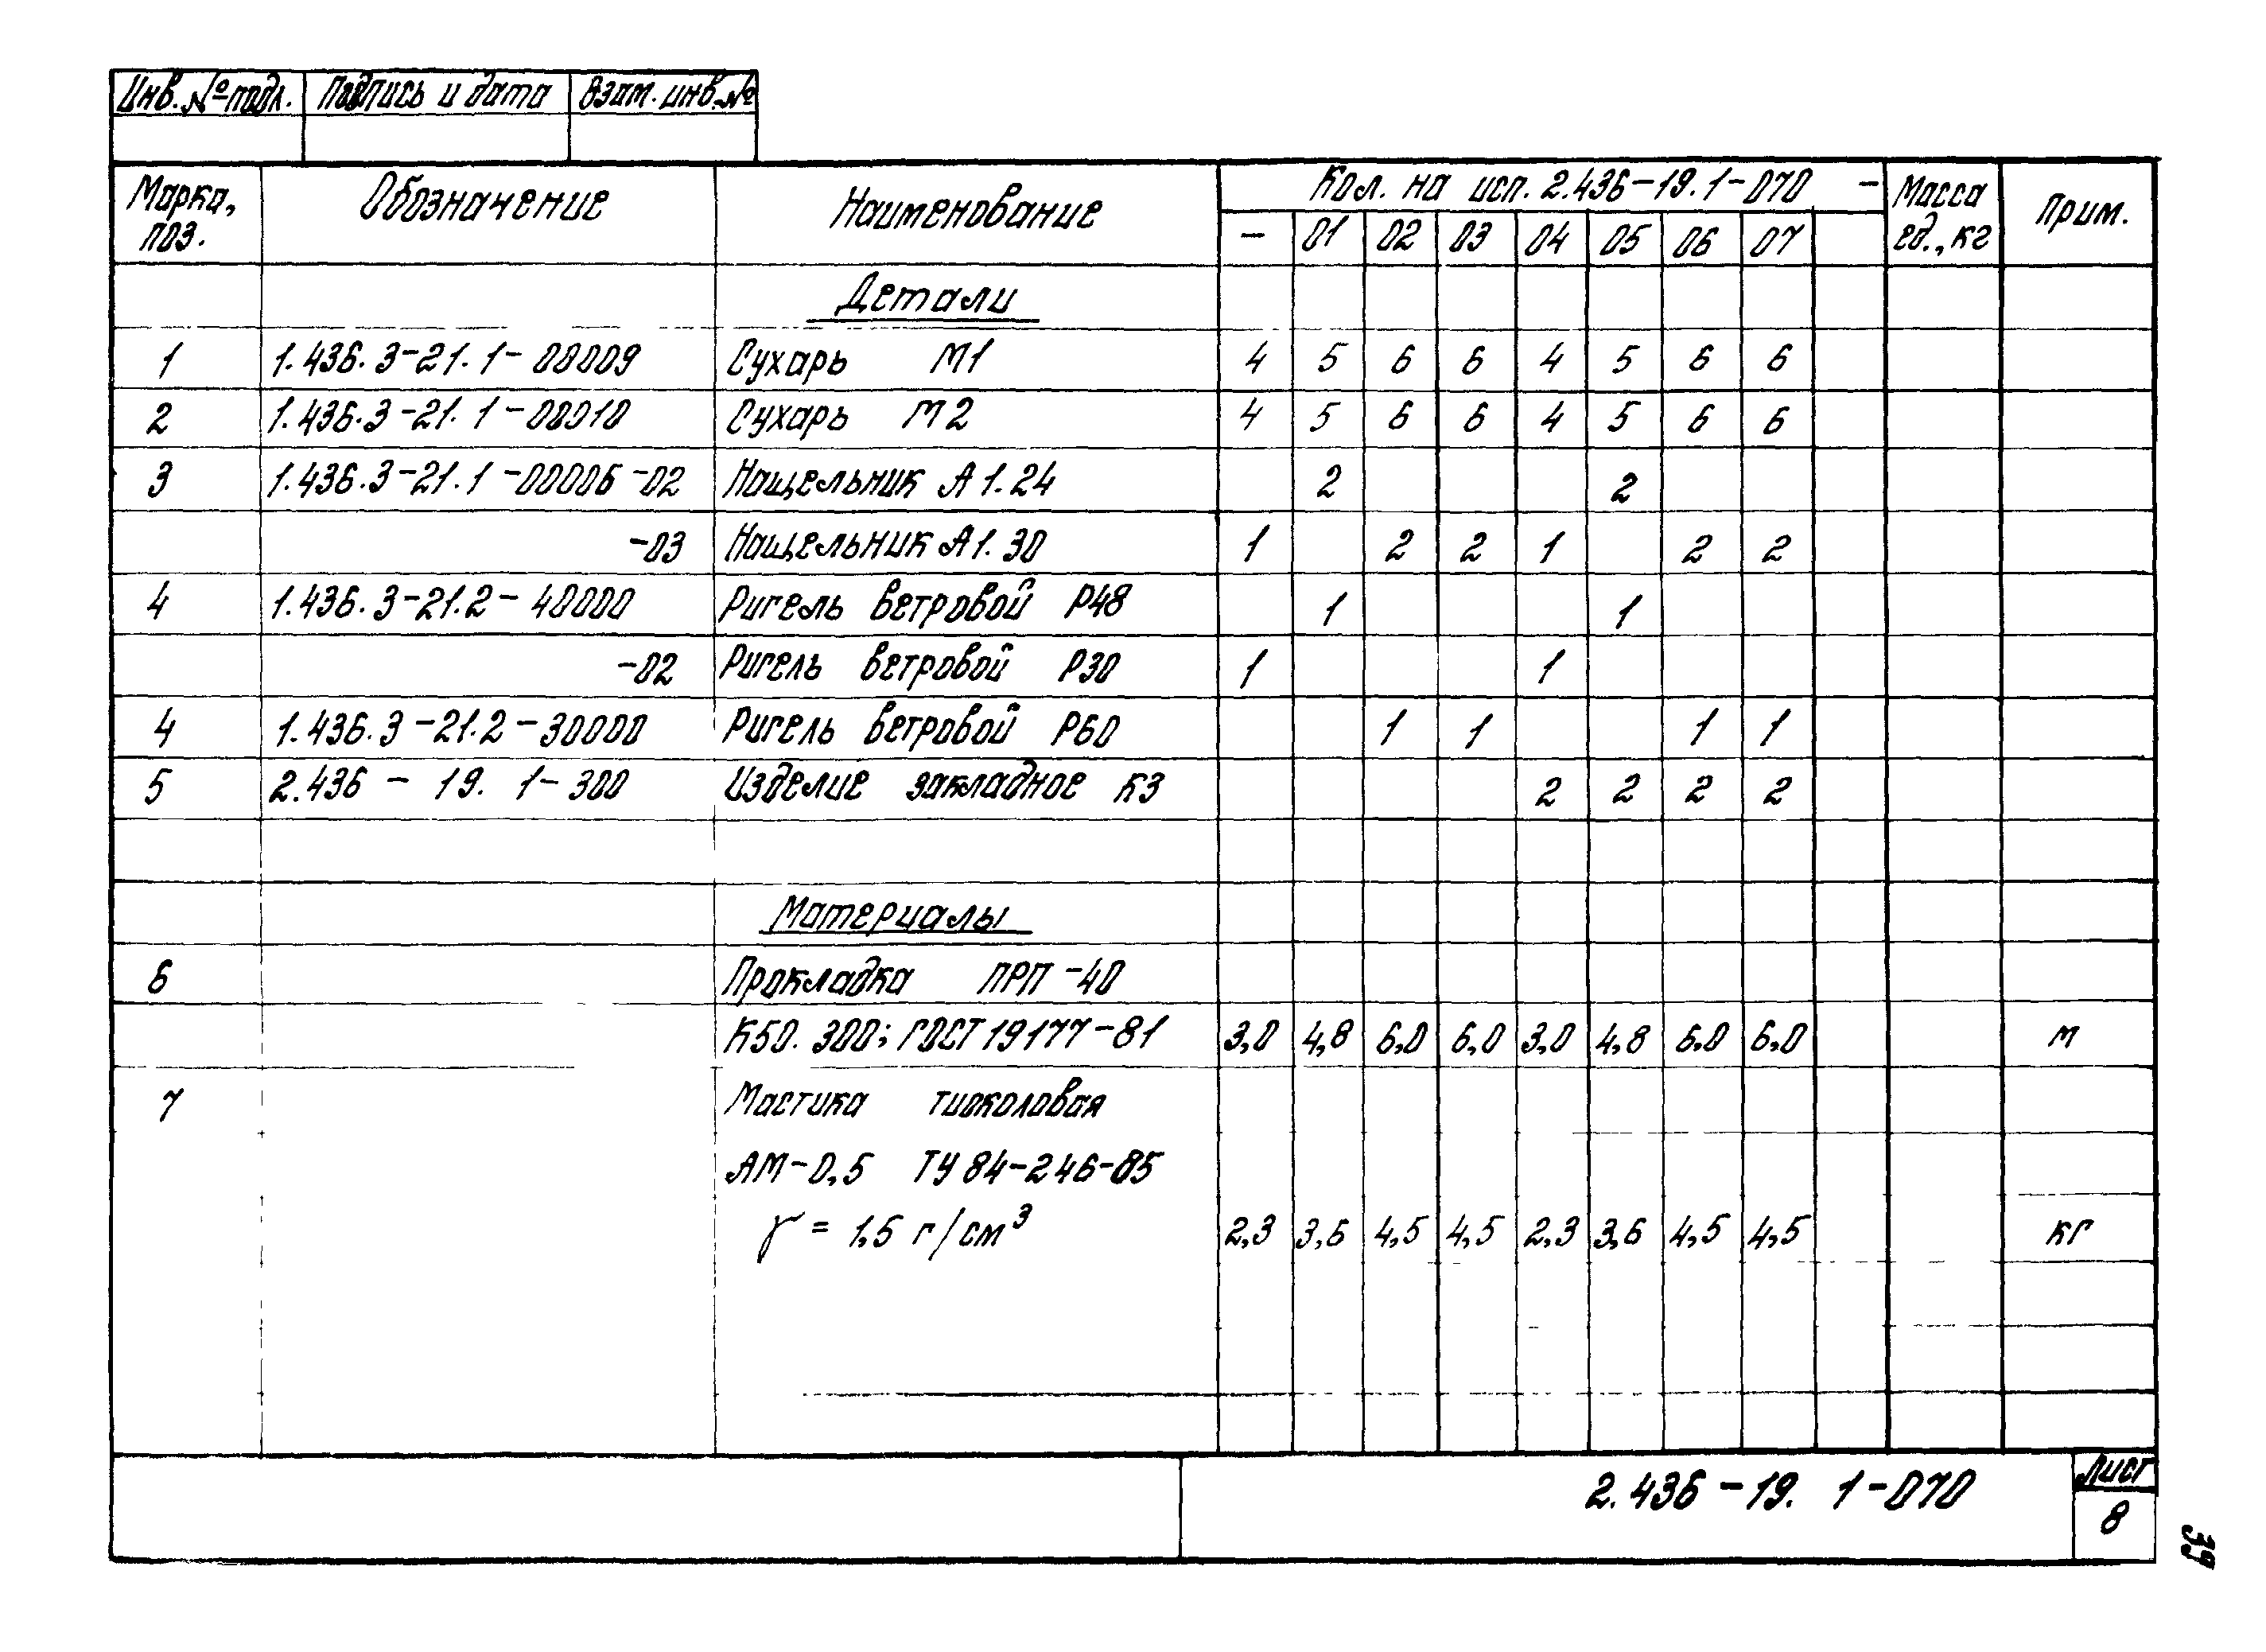 Инв. № подл. Подпись и дата Взам. инв. №
Марка, поз. Обозначение Наименование Кол. на исп. 2.436-19.1-070 - Масса ед., кг Прим.
- 01 02 03 04 05 06 07
Детали
1 1.436.3-21.1-00009 Сухарь М1 4 5 6 6 4 5 6 6
2 1.436.3-21.1-00010 Сухарь М2 4 5 6 6 4 5 6 6
3 1.436.3-21.1-00006-02 Нащельник А1.24 2 2
-03 Нащельник А1.30 1 2 2 1 2 2
4 1.436.3-21.2-40000 Ригель ветровой Р48 1 1
-02 Ригель ветровой Р30 1 1
4 1.436.3-21.2-30000 Ригель ветровой Р60 1 1 1 1
5 2.436-19.1-300 Изделие закладное К3 2 2 2 2
Материалы
6 Прокладка ПРП-40
К50.300; ГОСТ 19177-81 3,0 4,8 6,0 6,0 3,0 4,8 6,0 6,0 м
7 Мастика тиоколовая
АМ-0,5 ТУ 84-246-85
γ = 1,5 г/см³ 2,3 3,6 4,5 4,5 2,3 3,6 4,5 4,5 кг
2.436-19.1-070 Лист
8
39